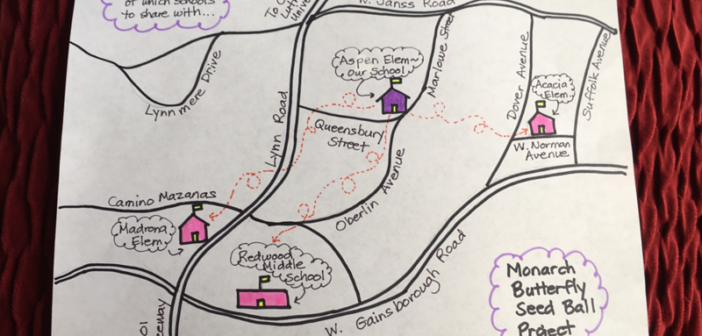 of which schools
to share with...
To
W. Janss Road
Lynnmere Drive
Lynn Road
Aspen Elem~
Our School
Marlowe Street
Dover Avenue
Acacia
Elem.
Suffolk Avenue
Queensbury
Street
W. Norman
Avenue
Camino Mazanas
Oberlin Avenue
Madrona
Elem.
Redwood
Middle
School
W. Gainsborough Road
Monarch
Butterfly
Seed Ball
Project